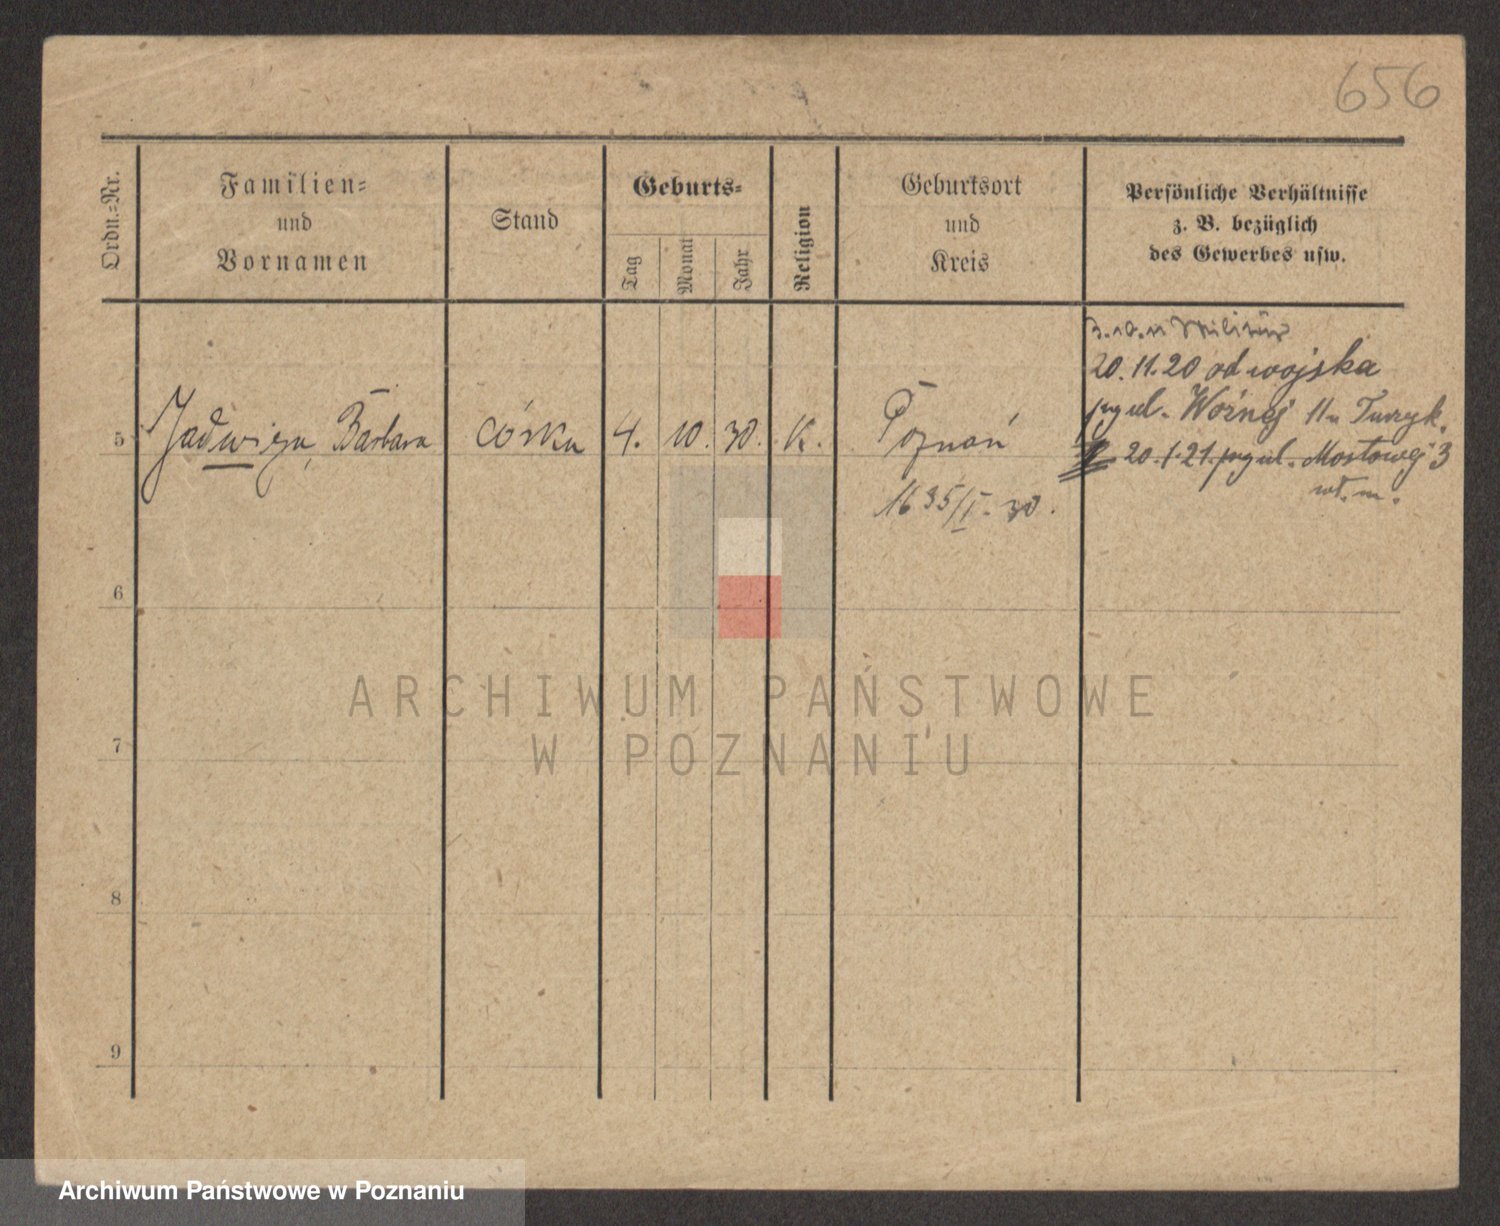 656
Ordn.=Nr.
Familien=
und
Vornamen
Stand
Geburts=
Tag
Monat
Jahr
Religion
Geburtsort
und
Kreis
Persönliche Verhältnisse
z. B. bezüglich
des Gewerbes usw.
Militär
20.11.20 od wojska
przy ul. Woźnej 11 u
20.1.21. przy ul. Mostowej 3
wł. m.
5 Jadwiga, Barbara córka 4. 10. 30. K. Poznań
1635/I. 30.
6
7
8
9
ARCHIWUM PAŃSTWOWE
W POZNANIU
Archiwum Państwowe w Poznaniu